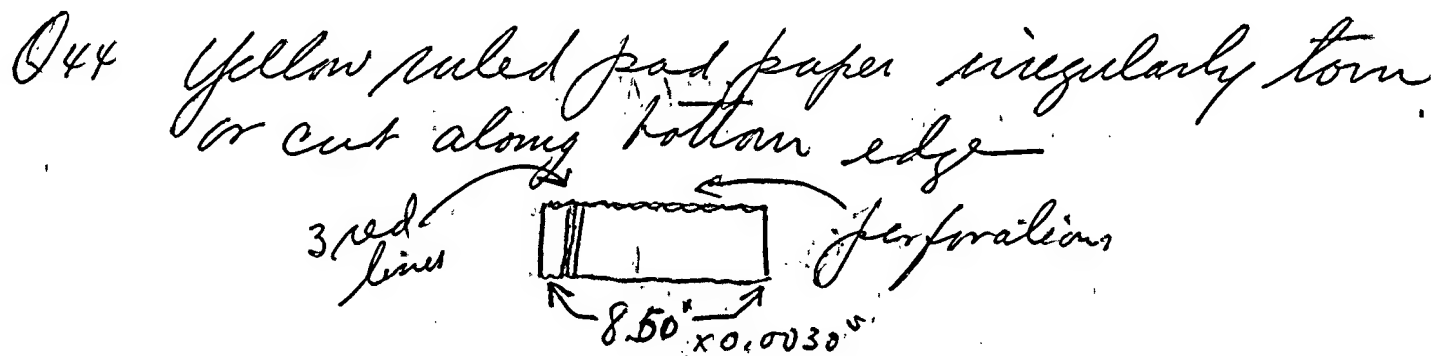 Q44 Yellow ruled pad paper irregularly torn
or cut along bottom edge
3 red
lines
perforations
8.50" x 0.0030"